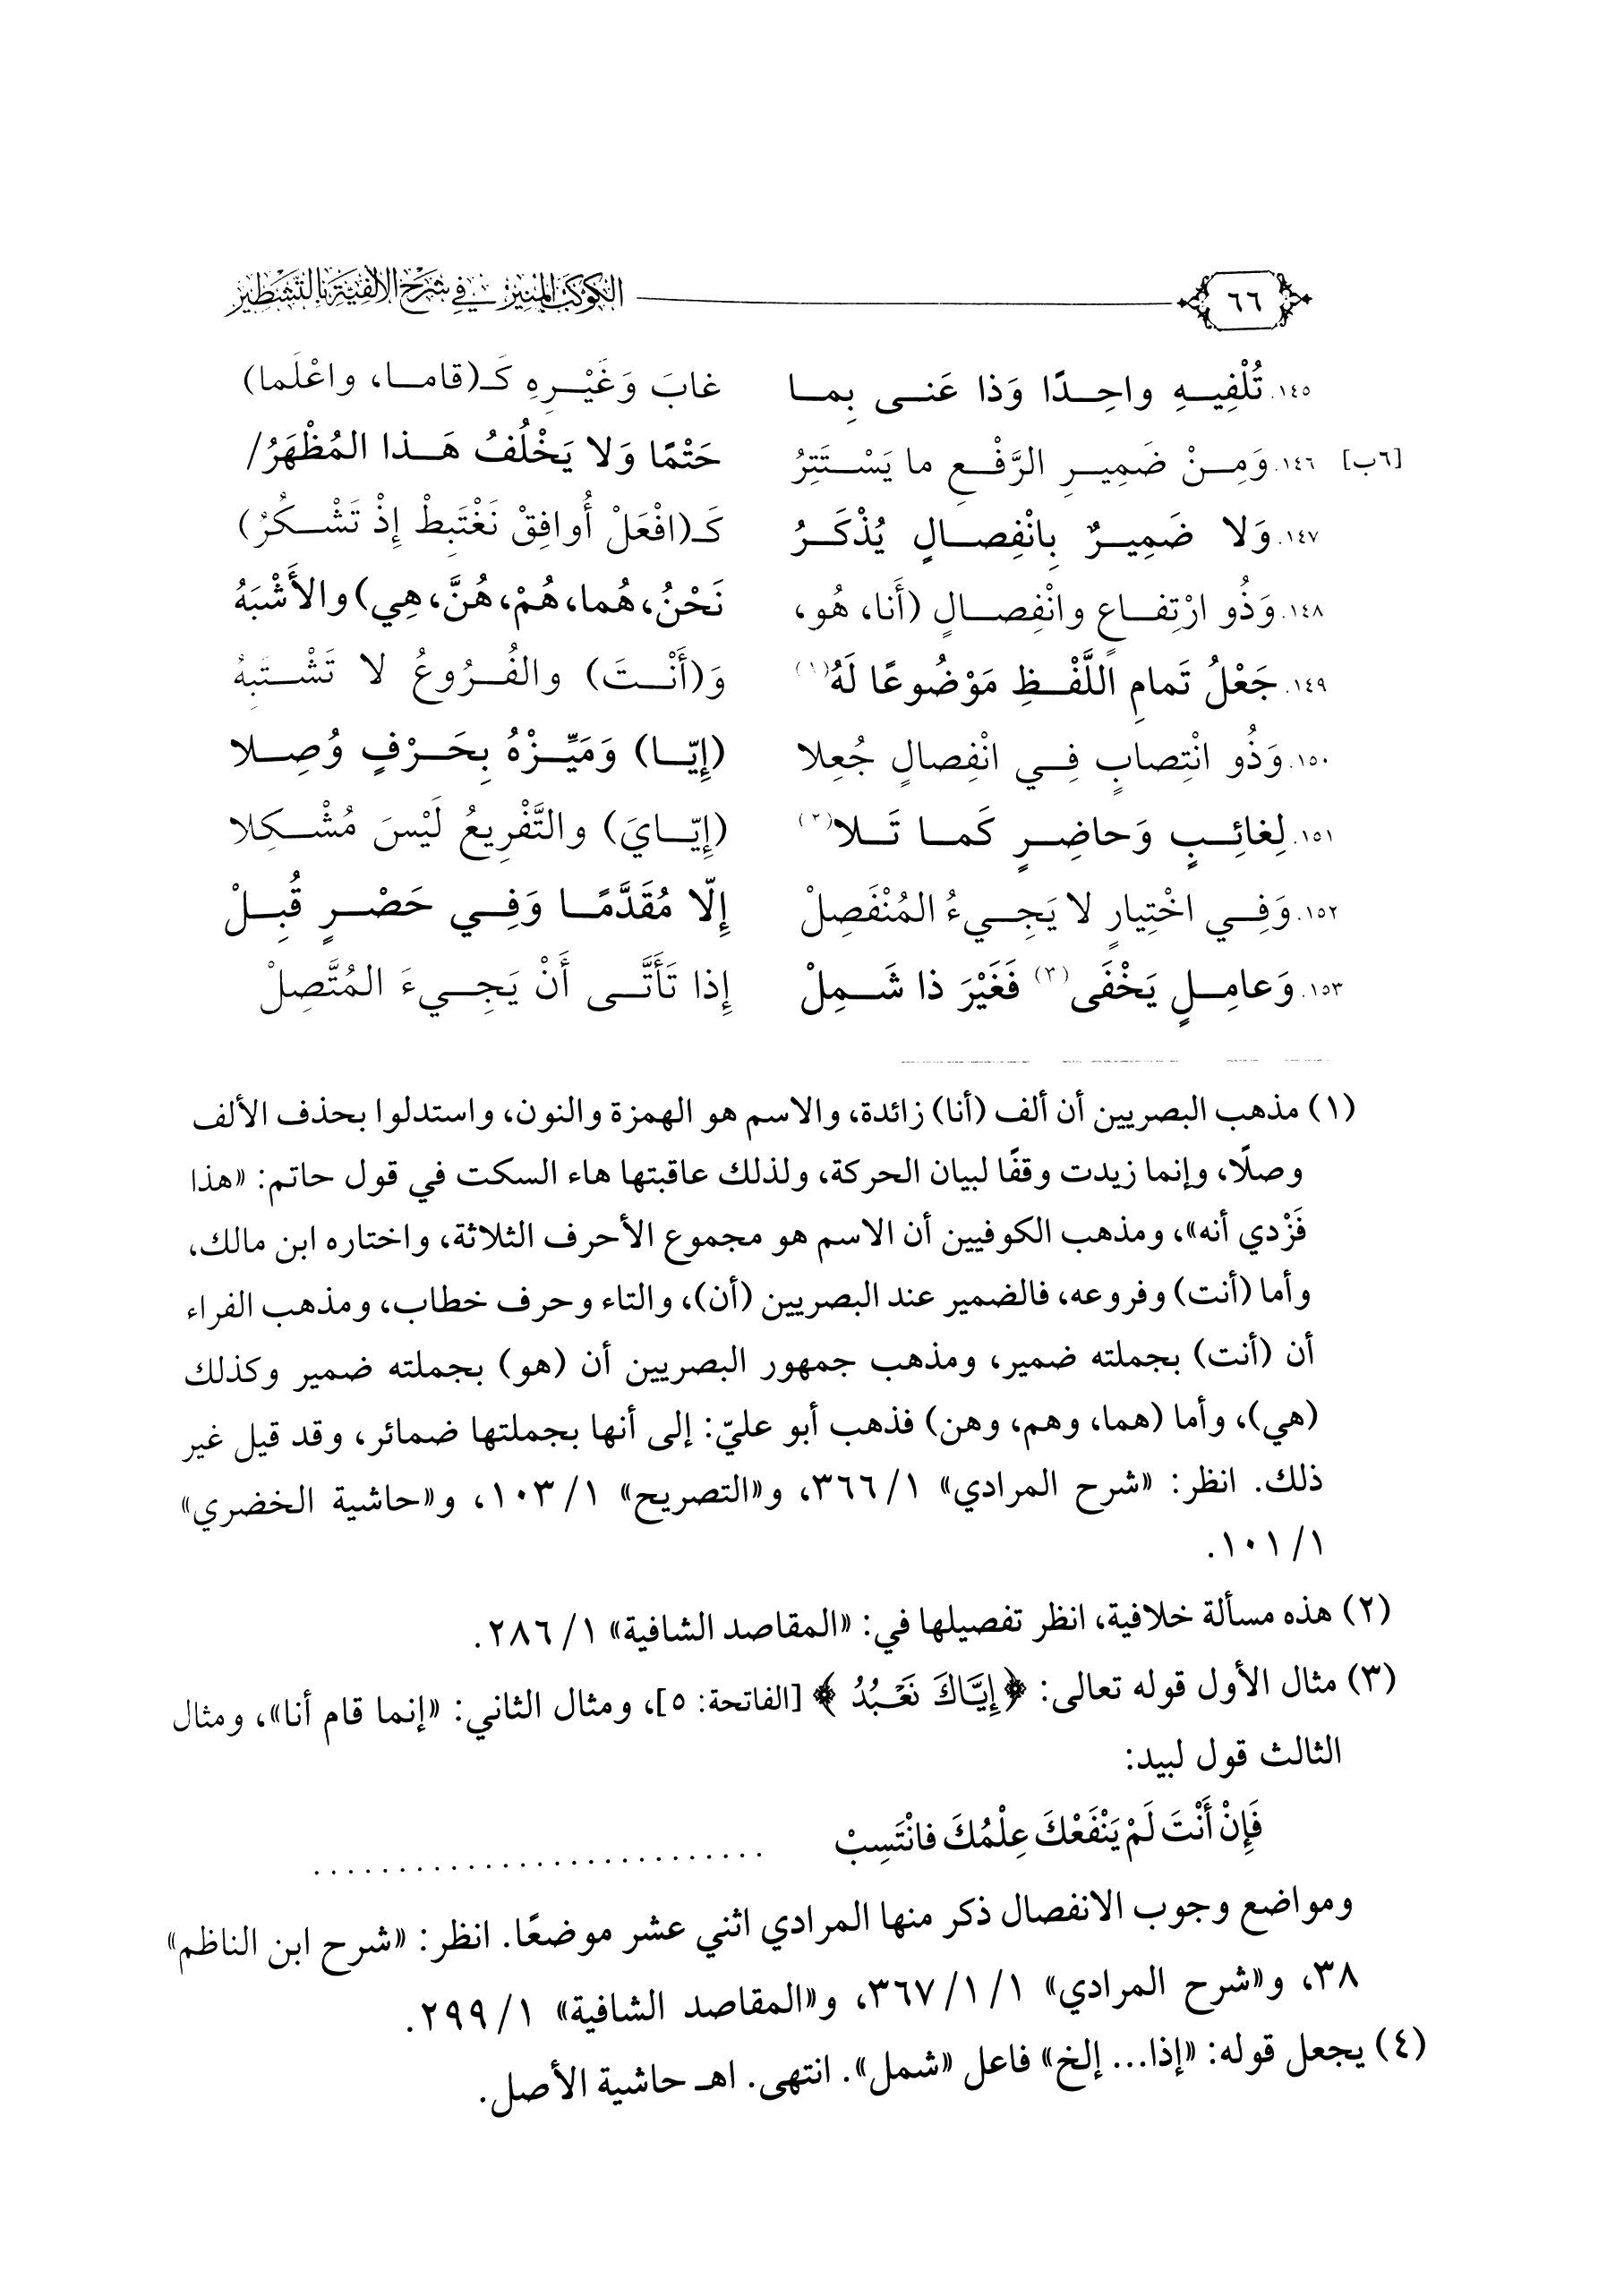 ٦٦ الكوكب المنير في شرح الألفية بالتشطير
١٤٥. تُلْفِيهِ واحِدًا وَذا عَنى بِما غابَ وَغَيْرِهِ كَـ(قاما، واعْلَما)
[٦ب] ١٤٦. وَمِنْ ضَمِيرِ الرَّفْعِ ما يَسْتَتِرُ حَتْمًا وَلا يَخْلُفُ هَذا المُظْهَرُ/
١٤٧. وَلا ضَمِيرٌ بِانْفِصالٍ يُذْكَرُ كَـ(افْعَلْ أُوافِقْ نَغْتَبِطْ إِذْ تَشْكُرُ)
١٤٨. وَذُو ارْتِفاعٍ وانْفِصالٍ (أَنا، هُو، نَحْنُ، هُما، هُمْ، هُنَّ، هِي) والأَشْبَهُ
١٤٩. جَعْلُ تَمامِ اللَّفْظِ مَوْضُوعًا لَهُ(١) وَ(أَنْتَ) والفُرُوعُ لا تَشْتَبِهُ
١٥٠. وَذُو انْتِصابٍ فِي انْفِصالٍ جُعِلا (إِيّا) وَمَيِّزْهُ بِحَرْفٍ وُصِلا
١٥١. لِغائِبٍ وَحاضِرٍ كَما تَلا(٢) (إِيّايَ) والتَّفْرِيعُ لَيْسَ مُشْكِلا
١٥٢. وَفِي اخْتِيارٍ لا يَجِيءُ المُنْفَصِلْ إِلّا مُقَدَّمًا وَفِي حَصْرٍ قُبِلْ
١٥٣. وَعامِلٍ يَخْفَى(٣) فَغَيْرَ ذا شَمِلْ إِذا تَأَتَّى أَنْ يَجِيءَ المُتَّصِلْ
(١) مذهب البصريين أن ألف (أنا) زائدة، والاسم هو الهمزة والنون، واستدلوا بحذف الألف
وصلًا، وإنما زيدت وقفًا لبيان الحركة، ولذلك عاقبتها هاء السكت في قول حاتم: «هذا
فَزْدي أنه»، ومذهب الكوفيين أن الاسم هو مجموع الأحرف الثلاثة، واختاره ابن مالك،
وأما (أنت) وفروعه، فالضمير عند البصريين (أن)، والتاء وحرف خطاب، ومذهب الفراء
أن (أنت) بجملته ضمير، ومذهب جمهور البصريين أن (هو) بجملته ضمير وكذلك
(هي)، وأما (هما، وهم، وهن) فذهب أبو عليّ: إلى أنها بجملتها ضمائر، وقد قيل غير
ذلك. انظر: «شرح المرادي» ١/ ٣٦٦، و«التصريح» ١/ ١٠٣، و«حاشية الخضري»
١/ ١٠١.
(٢) هذه مسألة خلافية، انظر تفصيلها في: «المقاصد الشافية» ١/ ٢٨٦.
(٣) مثال الأول قوله تعالى: ﴿إِيَّاكَ نَعْبُدُ﴾ [الفاتحة: ٥]، ومثال الثاني: «إنما قام أنا»، ومثال
الثالث قول لبيد:
فَإِنْ أَنْتَ لَمْ يَنْفَعْكَ عِلْمُكَ فانْتَسِبْ ...........................
ومواضع وجوب الانفصال ذكر منها المرادي اثني عشر موضعًا. انظر: «شرح ابن الناظم»
٣٨، و«شرح المرادي» ١/ ١/ ٣٦٧، و«المقاصد الشافية» ١/ ٢٩٩.
(٤) يجعل قوله: «إذا... إلخ» فاعل «شمل». انتهى. اهـ حاشية الأصل.